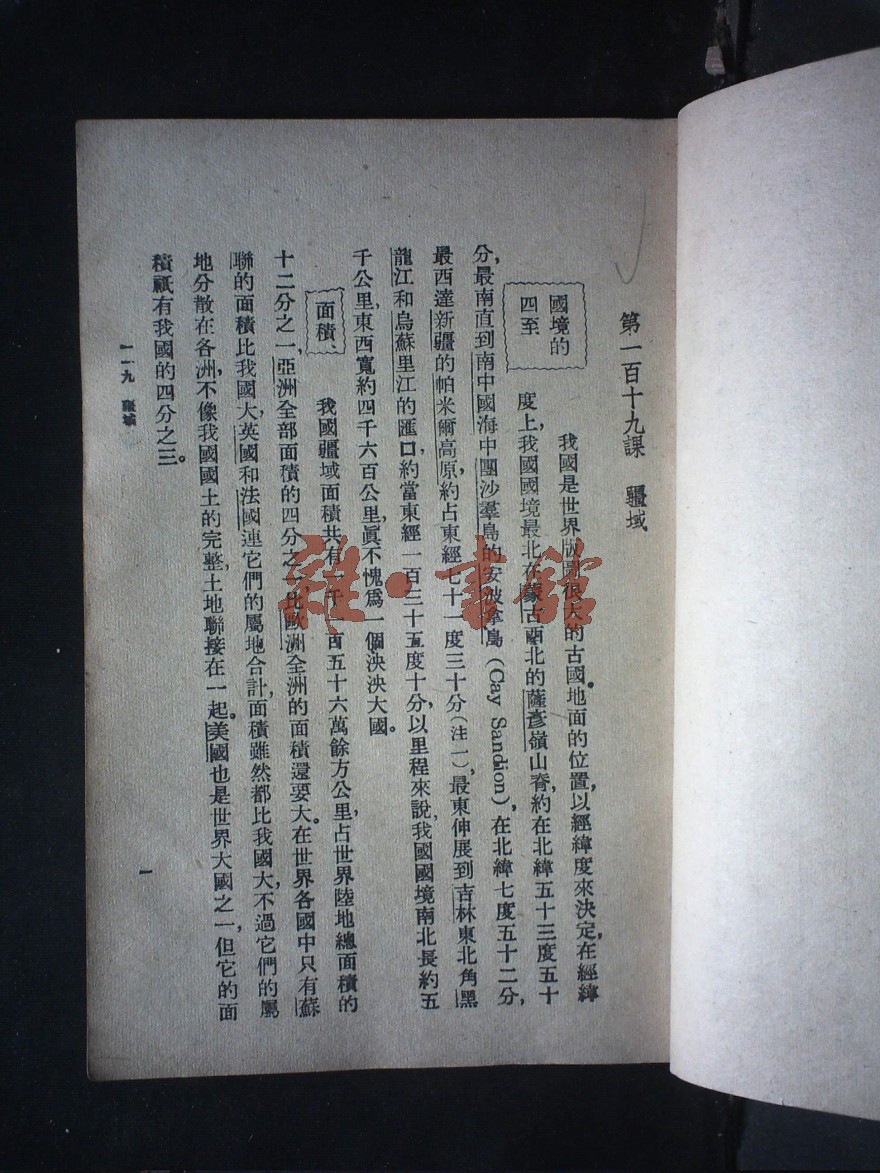 第一百十九課　疆域
國境的
四至
我國是世界版圖很大的古國。地面的位置，以經緯度來決定，在經緯
度上，我國國境最北在蒙古西北的薩彥嶺山脊，約在北緯五十三度五十
分，最南直到南中國海中團沙羣島的安波拿島（Cay Sandion），在北緯七度五十二分，
最西達新疆的帕米爾高原，約占東經七十一度三十分（注一），最東伸展到吉林東北角黑
龍江和烏蘇里江的匯口，約當東經一百三十五度十分，以里程來說，我國國境南北長約五
千公里，東西寬約四千六百公里，眞不愧爲一個泱泱大國。
面積、
我國疆域面積共有一千一百五十六萬餘方公里，占世界陸地總面積的
十二分之一，亞洲全部面積的四分之一，比歐洲全洲的面積還要大。在世界各國中只有蘇
聯的面積比我國大，英國和法國連它們的屬地合計，面積雖然都比我國大，不過它們的屬
地分散在各洲，不像我國國土的完整，土地聯接在一起。美國也是世界大國之一，但它的面
積祇有我國的四分之三。
一一九　疆域
一
雜·書館